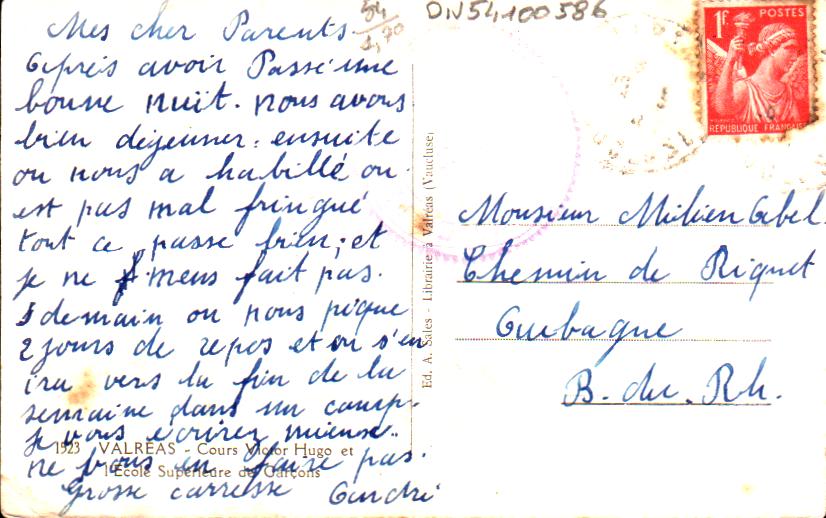 Mes cher Parents
Après avoir Passé une
bonne nuit. nous avons
bien dejeuner. ensuite
on nous a habillé on
est pas mal fringué
tout ce passe bien; et
je ne m'mens fait pas.
demain on nous pique
2 jours de repos et on s'en
ira vers la fin de la
semaine dans un camp.
Je vous ecrirez mieuse..
ne vous en faise pas.
Grosse carresse André
1923 VALRÉAS - Cours Victor Hugo et
l'École Supérieure de Garçons
54
1,70
DIV54,100586
Ed. A. Sales - Librairie à Valréas (Vaucluse)
1F
POSTES
REPUBLIQUE FRANÇAISE
Monsieur Milien Abel.
Chemin de Riquet
Aubagne
B. du. Rh.